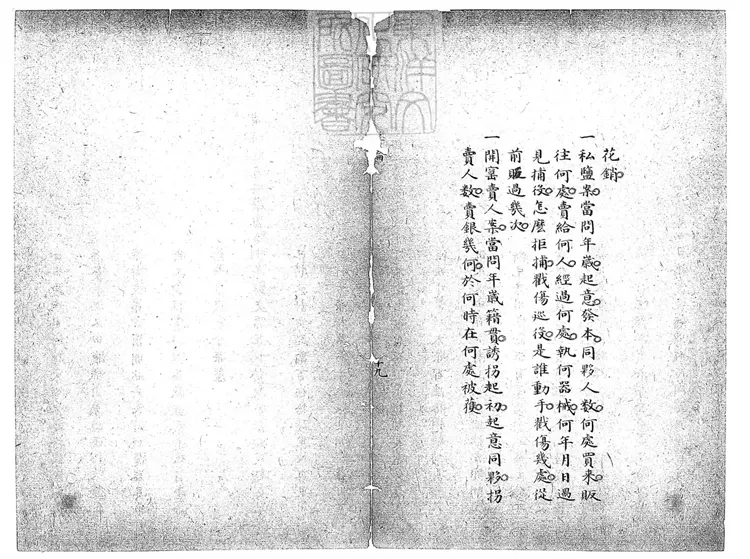 花銷。
一私鹽案。當問年歲。起意。發本。同夥人數。何處買來。販
往何處。賣給何人。經過何處。執何器械。何年月日。遇
見捕役。怎麼拒捕。戳傷巡役。是誰動手。戳傷幾處。從
前販過幾次。
一開窰賣人案。當問年歲籍貫。誘拐起初起意同夥。拐
賣人數。賣銀幾何。於何時在何處被獲。
十九
東洋文
化研究
所圖書